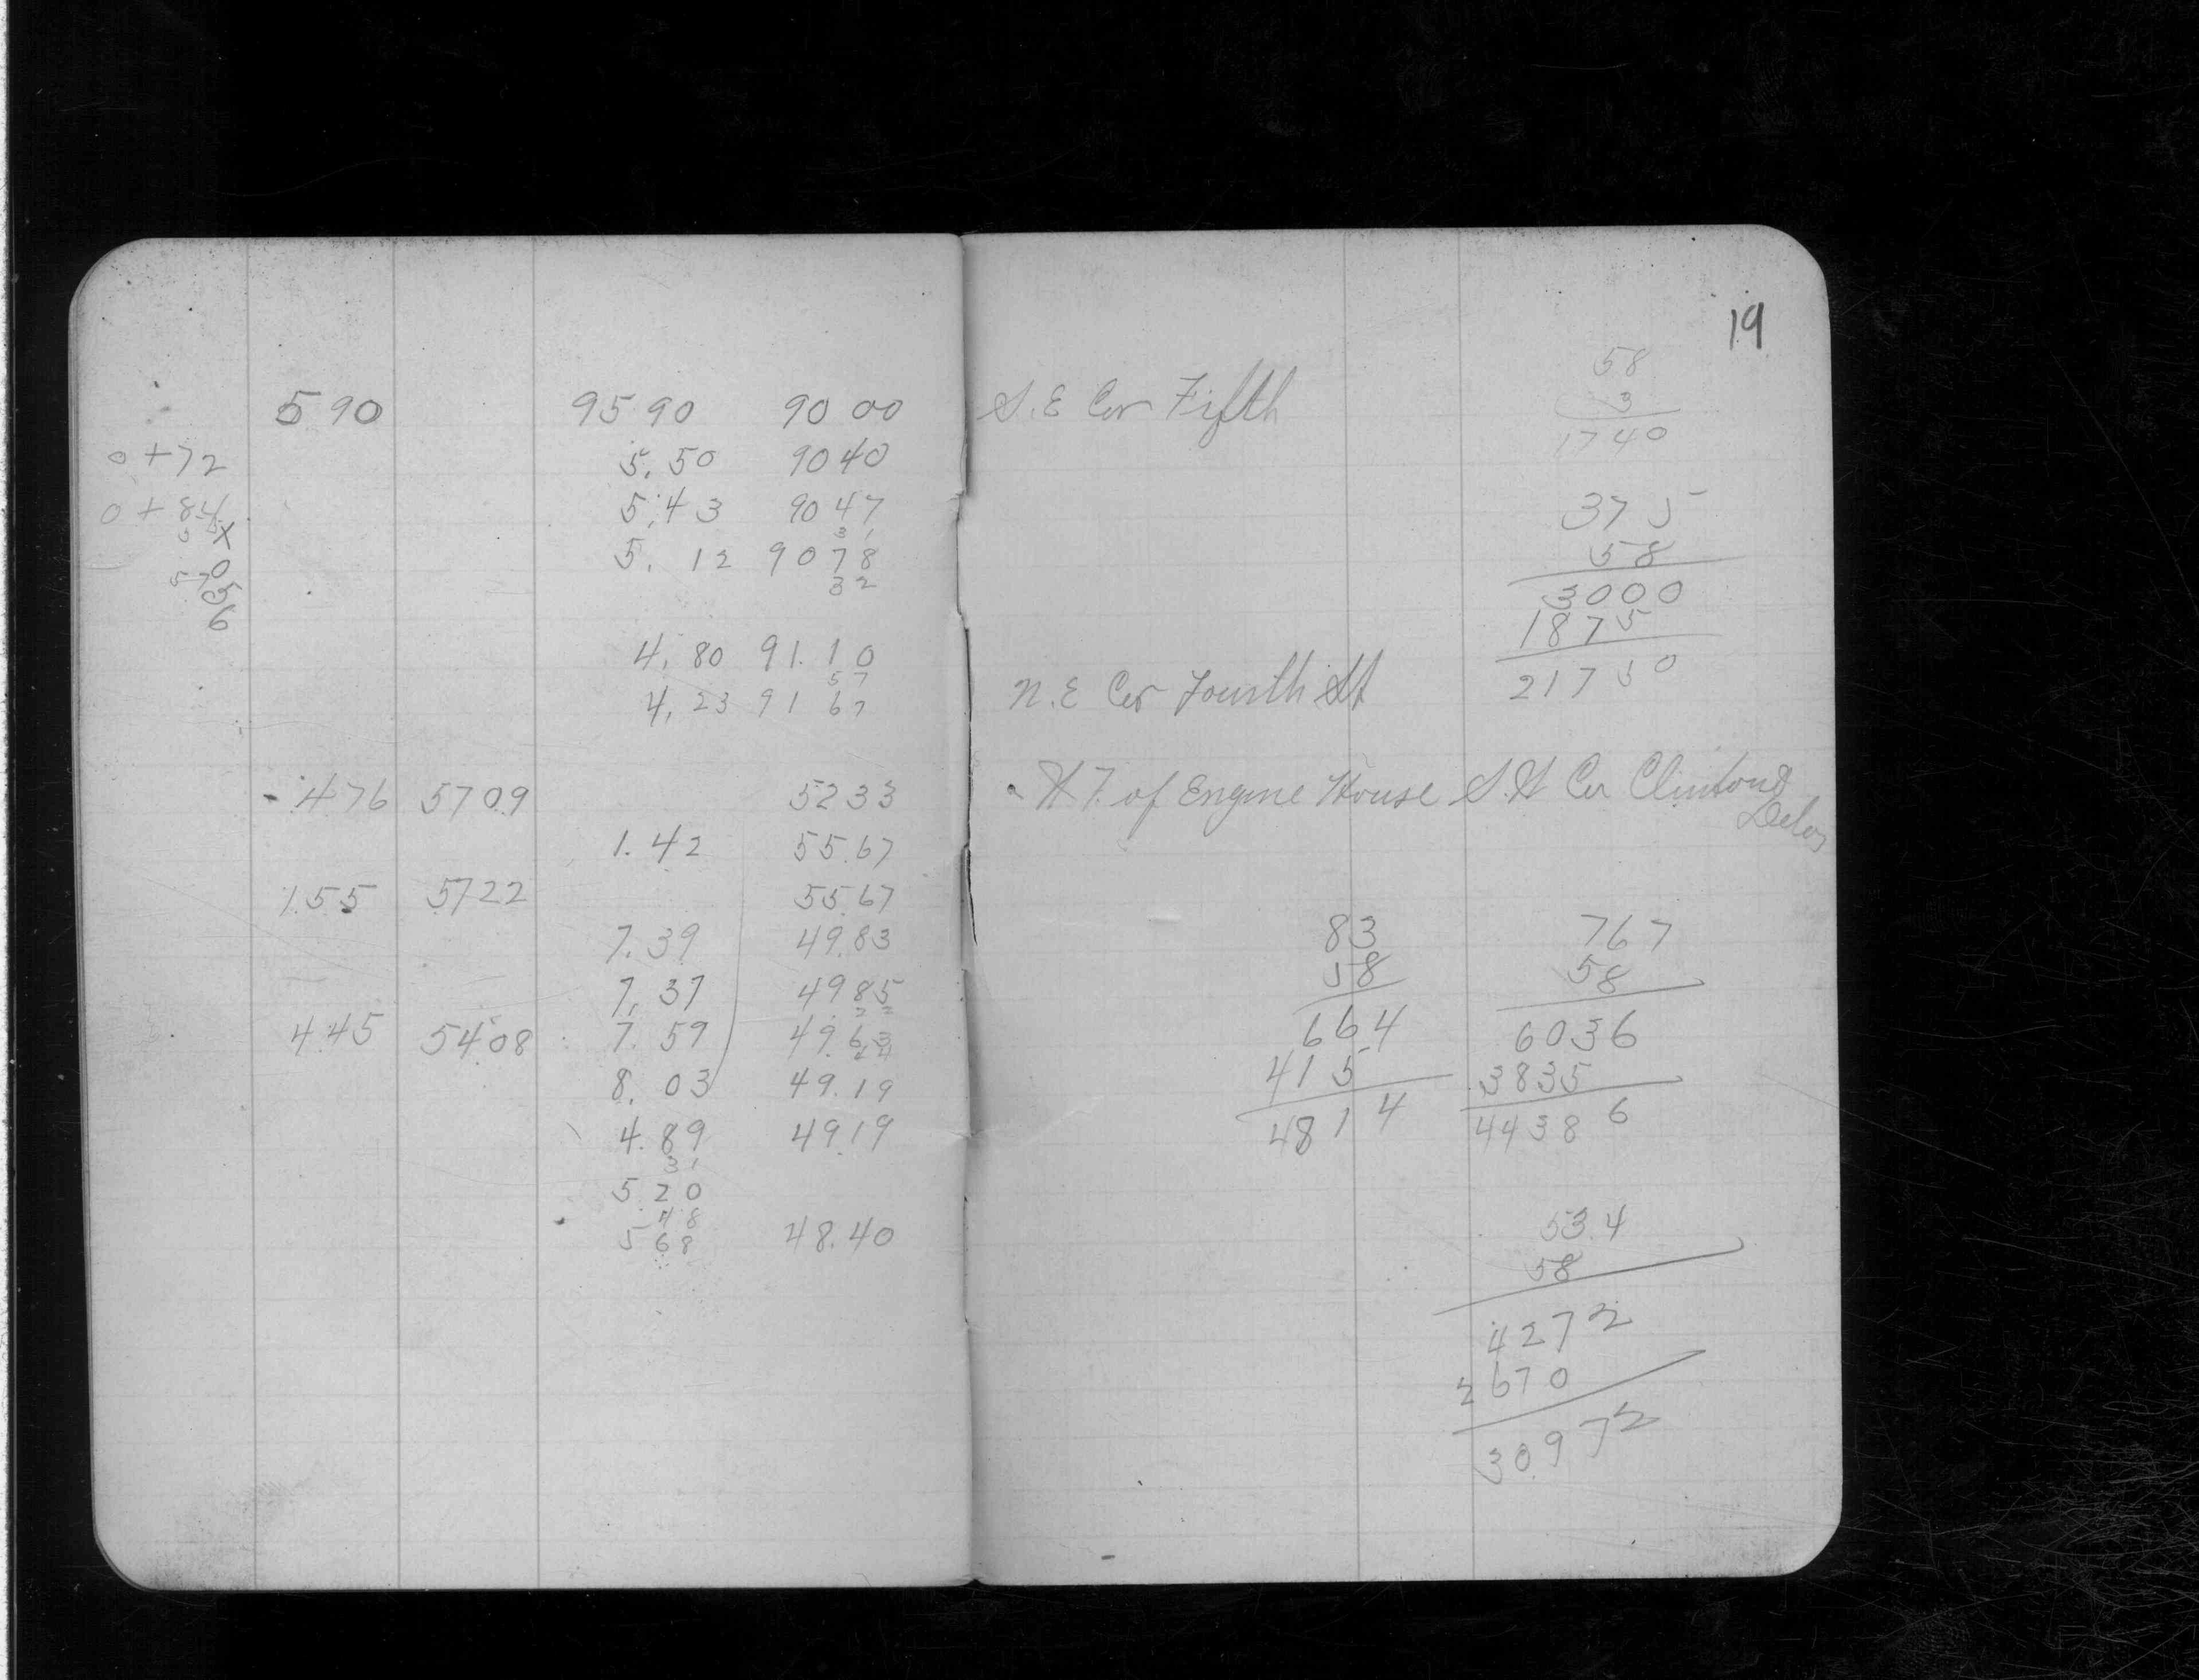 590 9590 90 00
0+72 5.50 9040
0+84 5.43 9047
31
5.12 9078
32
4.80 91.10
57
4.23 91 67
- 476 5709 5233
1.42 55.67
1.55 5722 55.67
7.39 49.83
7.37 4985
22
445 54.08 7.59 49.63
44
8.03 49.19
4.89 49.19
31
5 20
48
5 68 48.40
19
S.E Cor Fifth
58
3
1740
375
58
3000
1875
21750
N.E Cor Fourth St
of Engine House S.W Cor Clinton &
83
58
664
415
4814
767
58
6036
3835
44386
53.4
58
4272
2670
30972